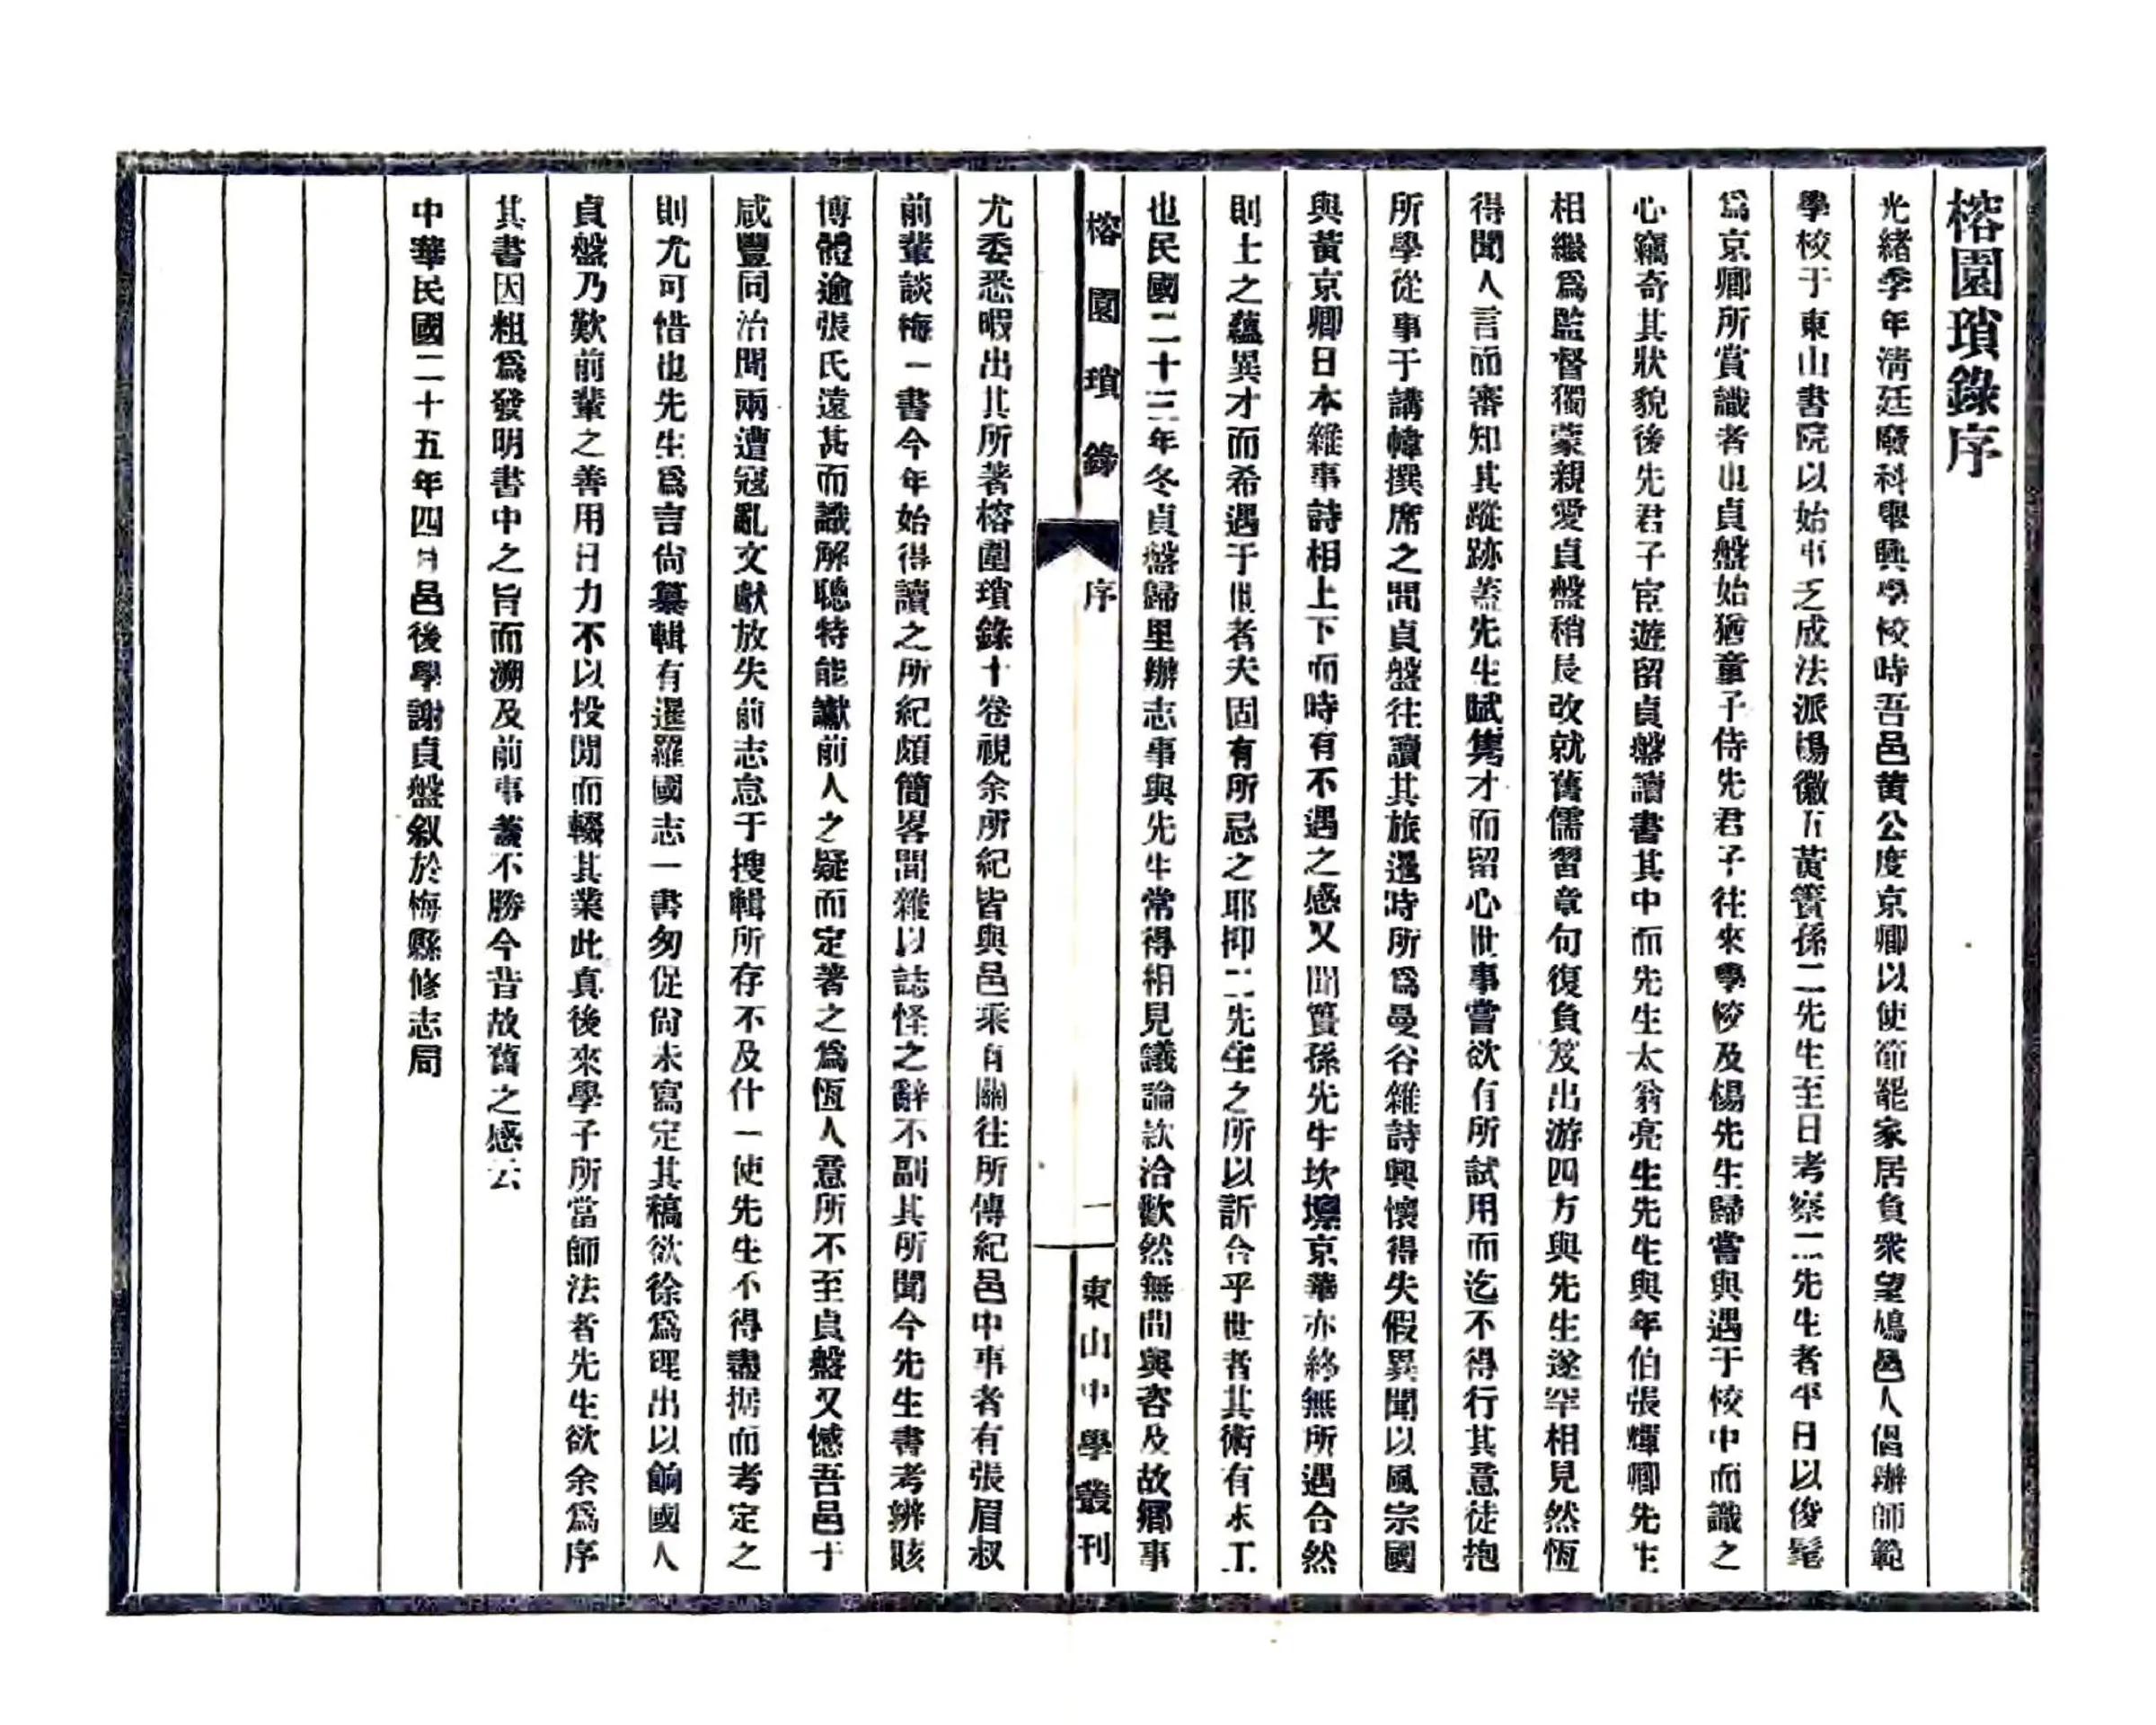 榕園瑣錄序
光緒季年淸廷廢科舉興學校時吾邑黃公度京卿以使節罷家居負衆望鳩邑人倡辦師範
學校于東山書院以始事乏成法派楊徽五黃簣孫二先生至日考察二先生者平日以俊髦
爲京卿所賞識者也貞盤始猶童子侍先君子往來學校及楊先生歸嘗與遇于校中而識之
心竊奇其狀貌後先君子宦遊留貞盤讀書其中而先生太翁亮生先生與年伯張輝卿先生
相繼爲監督獨蒙親愛貞盤稍長改就舊儒習章句復負笈出游四方與先生遂罕相見然恆
得聞人言而審知其蹤跡蓋先生賦雋才而留心世事嘗欲有所試用而迄不得行其意徒抱
所學從事于講幃撰席之間貞盤往讀其旅暹時所爲曼谷雜詩興懷得失假異聞以風宗國
與黃京卿日本雜事詩相上下而時有不遇之感又聞簣孫先生坎壈京華亦終無所遇合然
則士之蘊異才而希遇于世者夫固有所忌之耶抑二先生之所以訢合乎世者其術有未工
也民國二十三年冬貞盤歸里辦志事與先生常得相見議論款洽歡然無間與咨及故鄉事
榕園瑣錄 序 一 東山中學叢刊
尤委悉暇出其所著榕園瑣錄十卷視余所紀皆與邑乘有關往所傳紀邑中事者有張眉叔
前輩談梅一書今年始得讀之所紀頗簡畧間雜以誌怪之辭不副其所聞今先生書考辨賅
博體逾張氏遠甚而識解聰特能讞前人之疑而定著之爲恆人意所不至貞盤又憾吾邑于
咸豐同治間兩遭寇亂文獻放失前志怠于搜輯所存不及什一使先生不得盡据而考定之
則尤可惜也先生爲言尙纂輯有暹羅國志一書匆促尙未寫定其稿欲徐爲理出以餉國人
貞盤乃歎前輩之善用日力不以投閒而輟其業此真後來學子所當師法者先生欲余爲序
其書因粗爲發明書中之旨而溯及前事蓋不勝今昔故舊之感云
中華民國二十五年四月邑後學謝貞盤叙於梅縣修志局